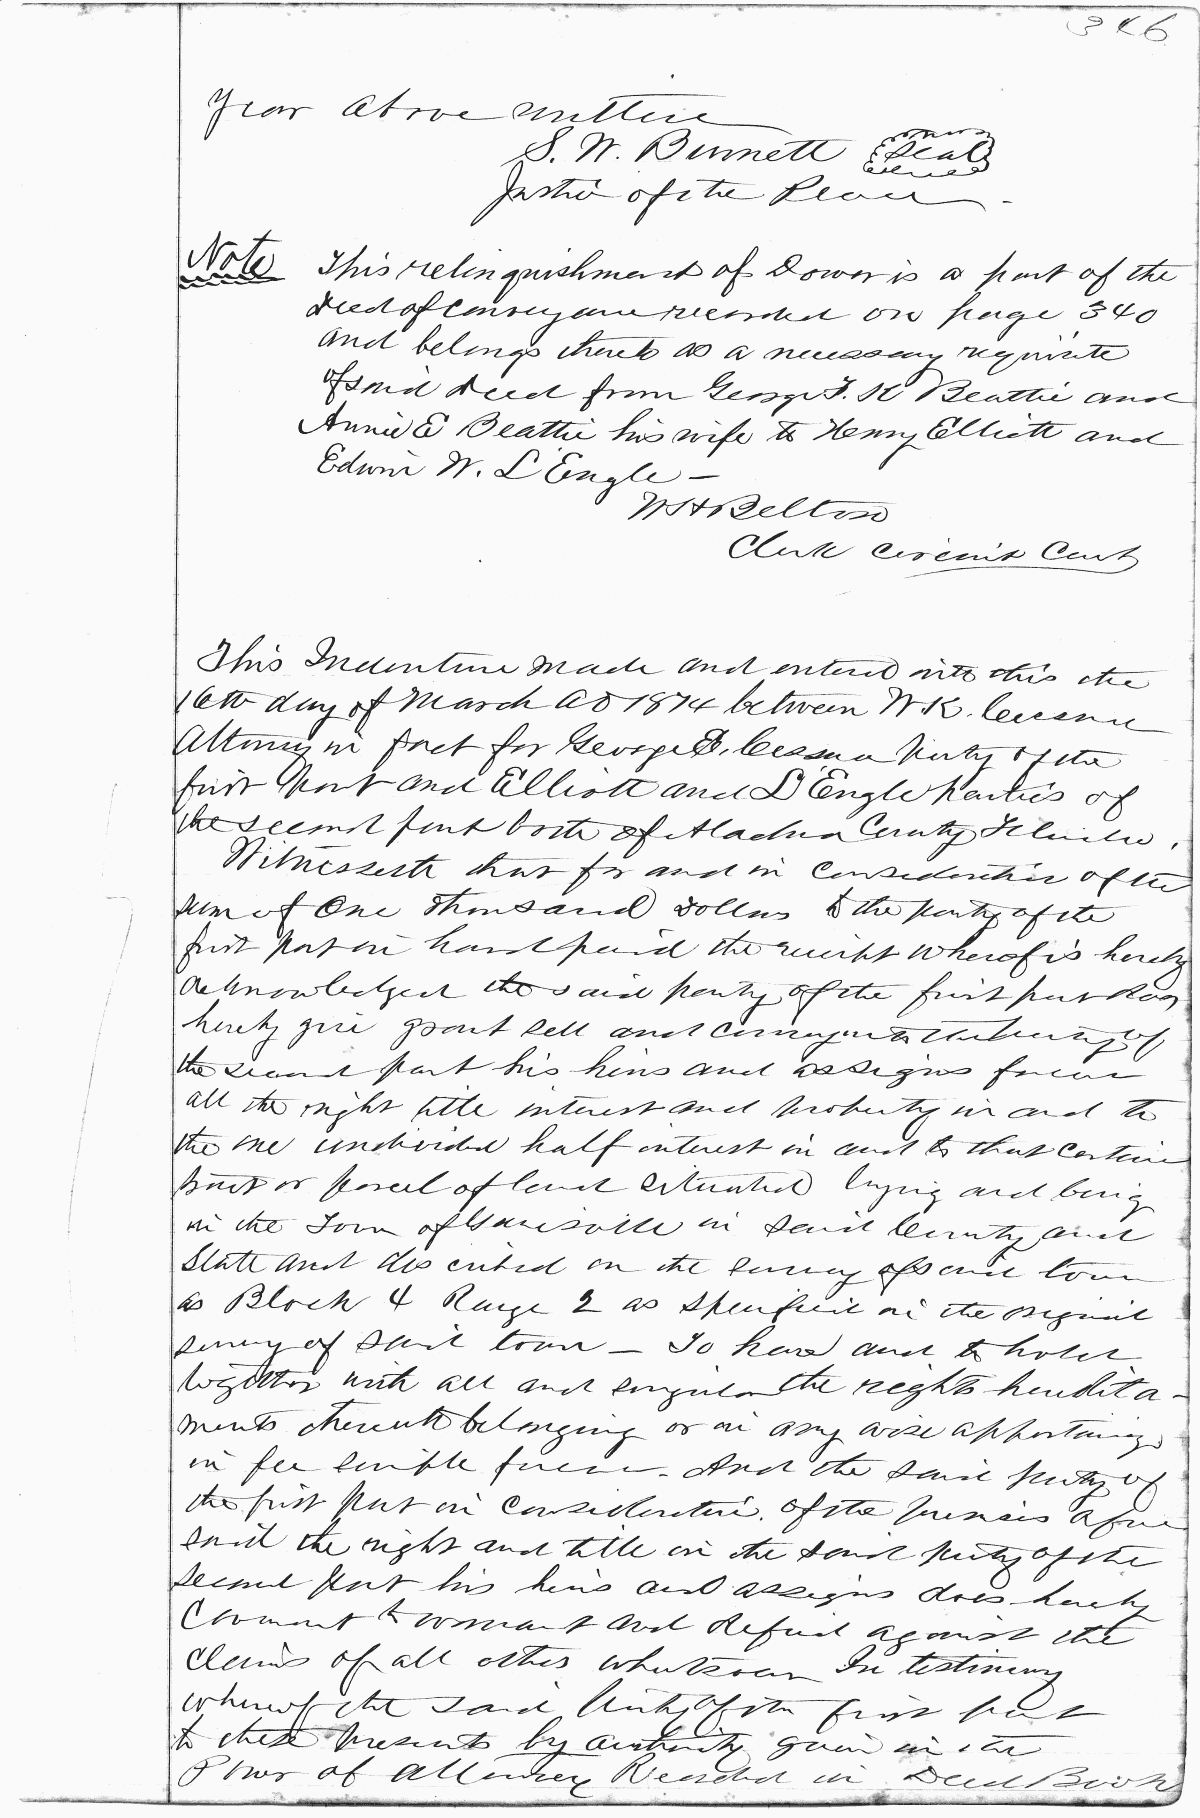 346
Year above written
S. W. Burnett Seal
Justice of the Peace
Note This relinquishment of Dower is a part of the
Deed of Conveyance recorded on page 340
and belongs thereto as a necessary requisite
of said Deed from George F. K Beattie and
Annie E Beattie his wife to Henry Elliott and
Edwin W. L'Engle –
W H Belton
Clerk Circuit Court
This Indenture made and entered into this the
16th day of March AD 1874 between W K. Cessna
Attorney in fact for George E. Cessna Party of the
first Part and Elliott and L'Engle Parties of
the second part both of Alachua County Florida.
Witnesseth that for and in consideration of the
sum of One thousand Dollars to the party of the
first part in hand paid the receipt whereof is hereby
acknowledged the said party of the first part does
hereby give grant sell and convey unto the party of
the second part his heirs and assigns forever
all the right title interest and property in and to
the one undivided half interest in and to that certain
tract or parcel of land situated lying and being
in the Town of Gainesville in said County and
State and described on the survey of said town
as Block 4 Range 2 as specified in the original
survey of said town – To have and to hold
together with all and singular the rights heredita-
ments thereunto belonging or in any wise appertaining
in fee simple forever. And the said party of
the first part in consideration of the premises afore
said the right and title in the said party of the
second part his heirs and assigns does hereby
Covenant to warrant and defend against the
claims of all others whatsoever In testimony
whereof the said Party of the first part
to these presents by authority given in the
Power of Attorney Recorded in Deed Book